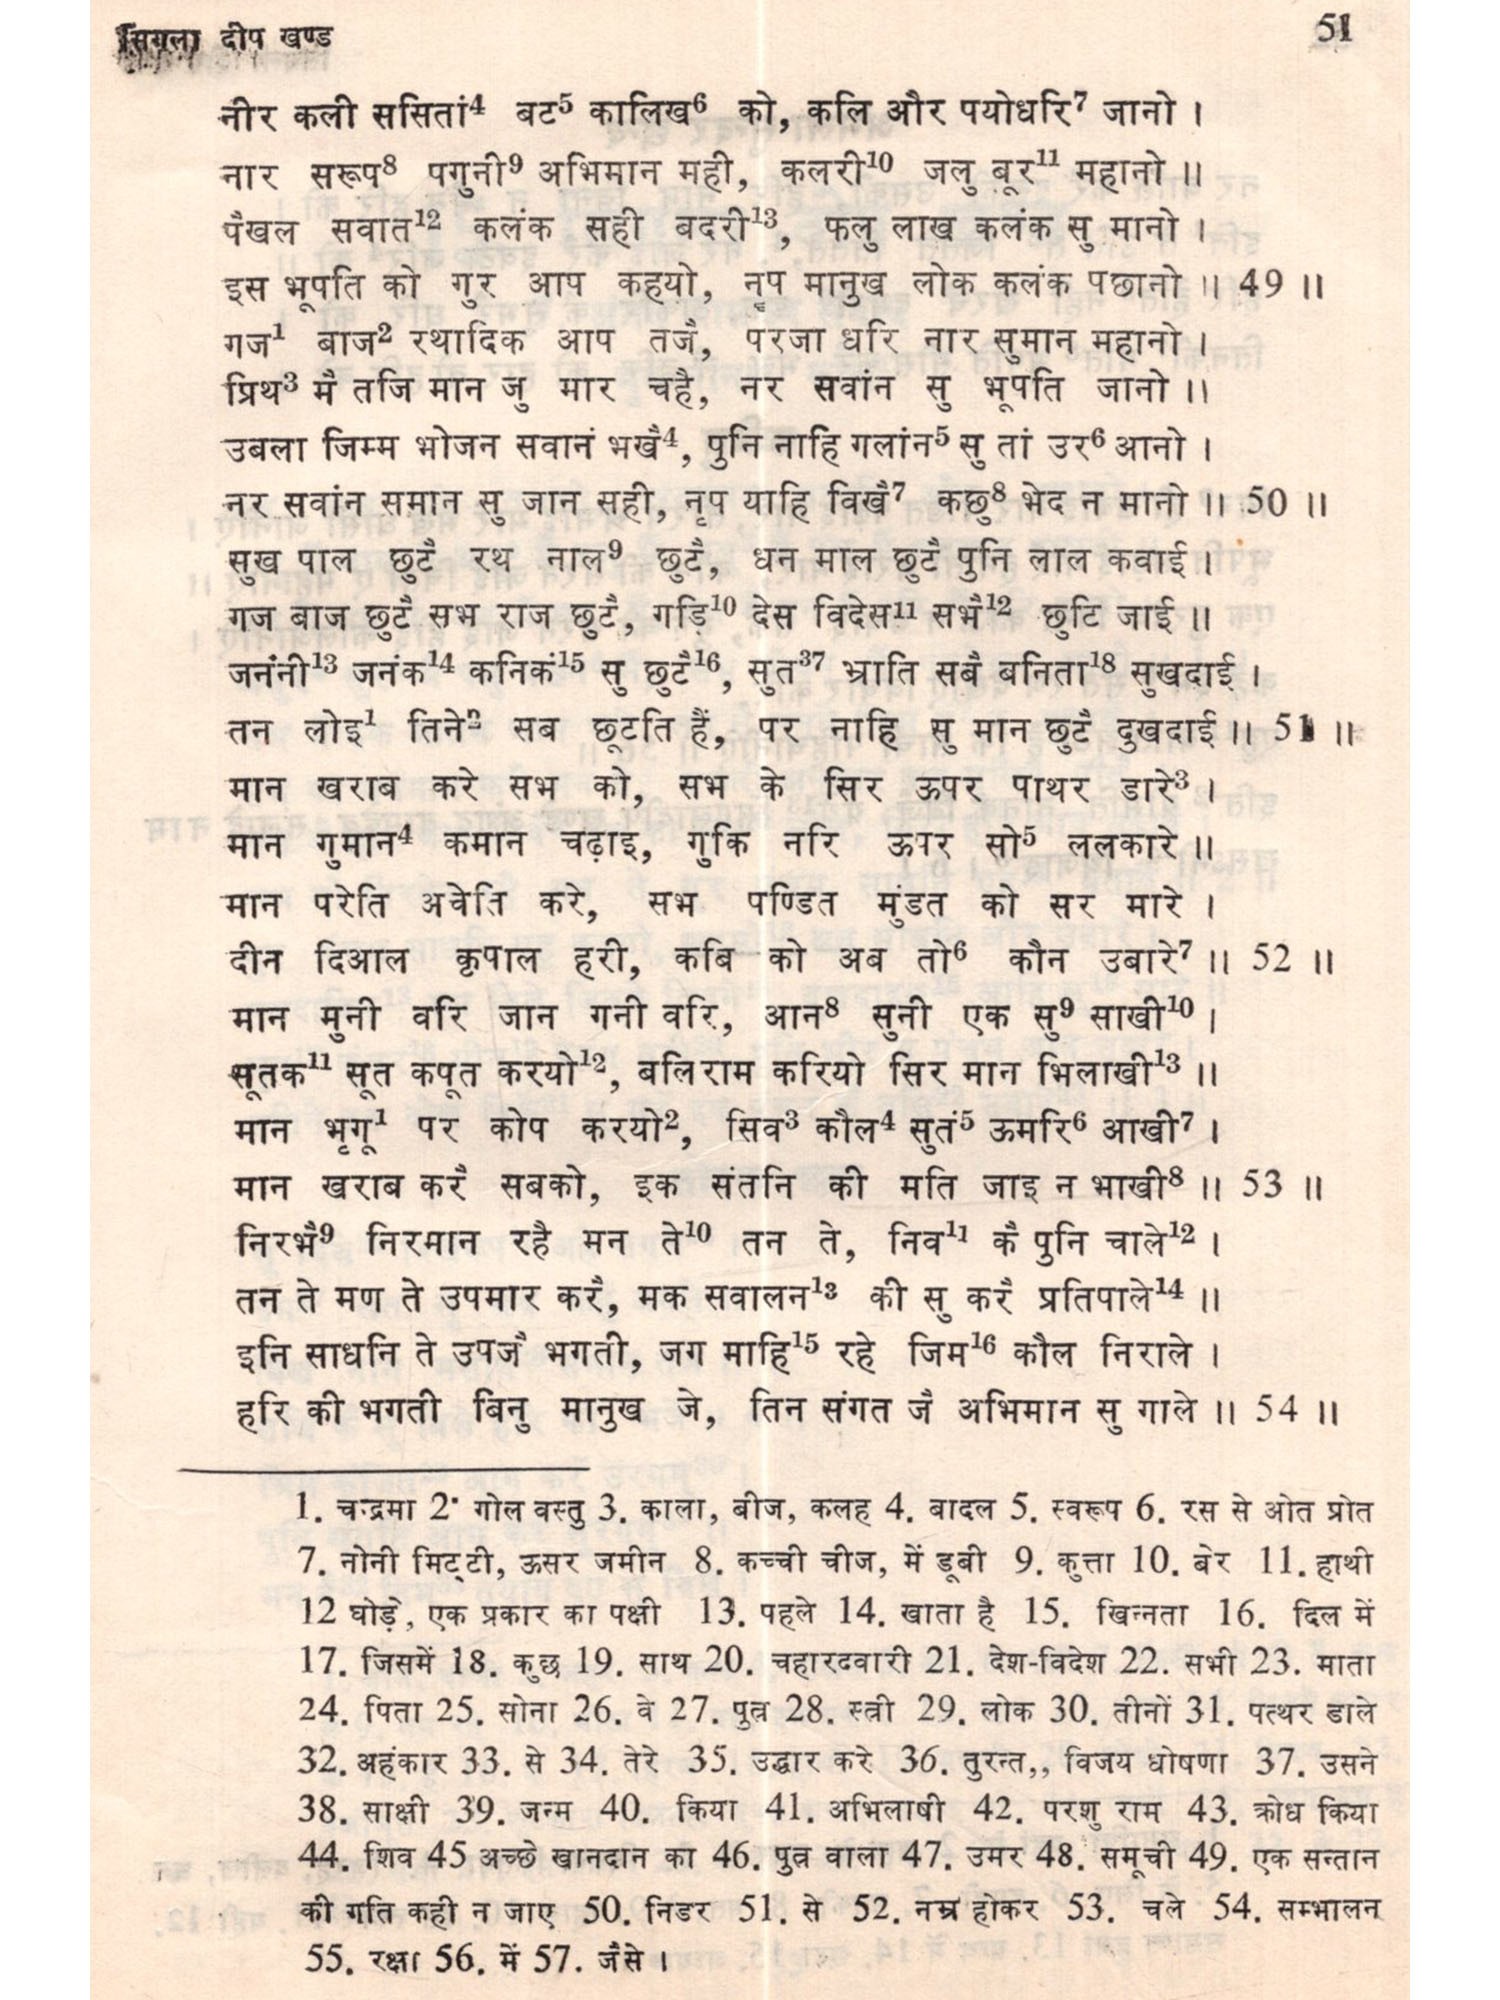 सिगला दीप खण्ड 51
नीर कली ससितां4 बट5 कालिख6 को, कलि और पयोधरि7 जानो ।
नार सरूप8 पगुनी9 अभिमान मही, कलरी10 जलु बूर11 महानो ॥
पैखल सवात12 कलंक सही बदरी13, फलु लाख कलंक सु मानो ।
इस भूपति को गुर आप कहयो, नृप मानुख लोक कलंक पछानो ॥ 49 ॥
गज1 बाज2 रथादिक आप तजै, परजा धरि नार सुमान महानो ।
प्रिथ3 मै तजि मान जु मार चहै, नर सवांन सु भूपति जानो ॥
उबला जिम्म भोजन सवानं भखै4, पुनि नाहि गलांन5 सु तां उर6 आनो ।
नर सवांन समान सु जान सही, नृप याहि विखै7 कछु8 भेद न मानो ॥ 50 ॥
सुख पाल छुटै रथ नाल9 छुटै, धन माल छुटै पुनि लाल कवाई ।
गज बाज छुटै सभ राज छुटै, गड़ि10 देस विदेस11 सभै12 छुटि जाई ॥
जनंनी13 जनंक14 कनिकं15 सु छुटै16, सुत37 भ्राति सबै बनिता18 सुखदाई ।
तन लोइ1 तिने2 सब छूटति हैं, पर नाहि सु मान छुटै दुखदाई ॥ 51 ॥
मान खराब करे सभ को, सभ के सिर ऊपर पाथर डारे3 ।
मान गुमान4 कमान चढ़ाइ, गुकि नरि ऊपर सो5 ललकारे ॥
मान परेति अचेति करे, सभ पण्डित मुंडत को सर मारे ।
दीन दिआल कृपाल हरी, कबि को अब तो6 कौन उबारे7 ॥ 52 ॥
मान मुनी वरि जान गनी वरि, आन8 सुनी एक सु9 साखी10 ।
सूतक11 सूत कपूत करयो12, बलिराम करियो सिर मान भिलाखी13 ॥
मान भृगू1 पर कोप करयो2, सिव3 कौल4 सुतं5 ऊमरि6 आखी7 ।
मान खराब करै सबको, इक संतनि की मति जाइ न भाखी8 ॥ 53 ॥
निरभै9 निरमान रहै मन ते10 तन ते, निव11 कै पुनि चाले12 ।
तन ते मण ते उपमार करै, मक सवालन13 की सु करै प्रतिपाले14 ॥
इनि साधनि ते उपजै भगती, जग माहि15 रहे जिम16 कौल निराले ।
हरि की भगती बिनु मानुख जे, तिन संगत जै अभिमान सु गाले ॥ 54 ॥
1. चन्द्रमा 2. गोल वस्तु 3. काला, बीज, कलह 4. बादल 5. स्वरूप 6. रस से ओत प्रोत
7. नोनी मिट्टी, ऊसर जमीन 8. कच्ची चीज, में डूबी 9. कुत्ता 10. बेर 11. हाथी
12 घोड़े, एक प्रकार का पक्षी 13. पहले 14. खाता है 15. खिन्नता 16. दिल में
17. जिसमें 18. कुछ 19. साथ 20. चहारदवारी 21. देश-विदेश 22. सभी 23. माता
24. पिता 25. सोना 26. वे 27. पुत्र 28. स्त्री 29. लोक 30. तीनों 31. पत्थर डाले
32. अहंकार 33. से 34. तेरे 35. उद्धार करे 36. तुरन्त,, विजय घोषणा 37. उसने
38. साक्षी 39. जन्म 40. किया 41. अभिलाषी 42. परशु राम 43. क्रोध किया
44. शिव 45 अच्छे खानदान का 46. पुत्र वाला 47. उमर 48. समूची 49. एक सन्तान
की गति कही न जाए 50. निडर 51. से 52. नम्र होकर 53. चले 54. सम्भालन
55. रक्षा 56. में 57. जैसे ।